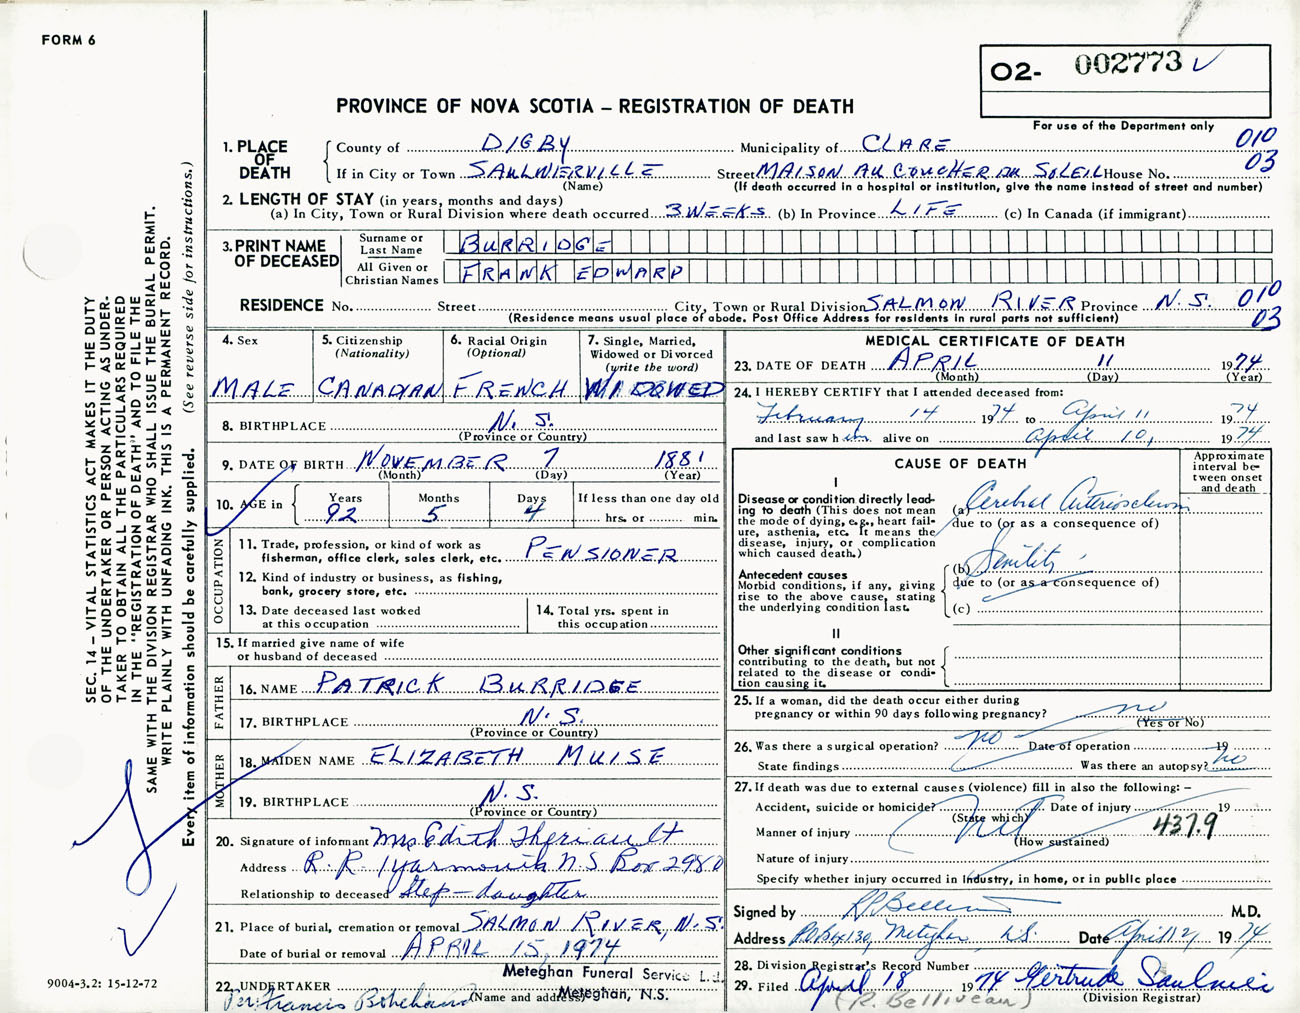 FORM 6
O2- 002773
PROVINCE OF NOVA SCOTIA – REGISTRATION OF DEATH
For use of the Department only
1. PLACE OF DEATH
County of DIGBY Municipality of CLARE 010
If in City or Town SAULNIERVILLE Street MAISON AU COUCHER DU SOLEIL House No. 03
(Name) (If death occurred in a hospital or institution, give the name instead of street and number)
2. LENGTH OF STAY (in years, months and days)
(a) In City, Town or Rural Division where death occurred 3 WEEKS (b) In Province LIFE (c) In Canada (if immigrant)
3. PRINT NAME OF DECEASED
Surname or Last Name BURRIDGE
All Given or Christian Names FRANK EDWARD
RESIDENCE No. Street City, Town or Rural Division SALMON RIVER Province N.S. 010
(Residence means usual place of abode. Post Office Address for residents in rural parts not sufficient) 03
4. Sex
MALE
5. Citizenship
(Nationality)
CANADIAN
6. Racial Origin
(Optional)
FRENCH
7. Single, Married,
Widowed or Divorced
(write the word)
WIDOWED
8. BIRTHPLACE N. S.
(Province or Country)
9. DATE OF BIRTH NOVEMBER 7 1881
(Month) (Day) (Year)
10. AGE in
Years Months Days If less than one day old
92 5 4 hrs. or min.
OCCUPATION
11. Trade, profession, or kind of work as
fisherman, office clerk, sales clerk, etc. PENSIONER
12. Kind of industry or business, as fishing,
bank, grocery store, etc.
13. Date deceased last worked
at this occupation
14. Total yrs. spent in
this occupation
15. If married give name of wife
or husband of deceased
FATHER
16. NAME PATRICK BURRIDGE
17. BIRTHPLACE N. S.
(Province or Country)
MOTHER
18. MAIDEN NAME ELIZABETH MUISE
19. BIRTHPLACE N. S.
(Province or Country)
20. Signature of informant Mrs Edith Theriault
Address R. R. 1 Yarmouth N.S. Box 298
Relationship to deceased Step-daughter
21. Place of burial, cremation or removal SALMON RIVER, N.S.
Date of burial or removal APRIL 15, 1974
Meteghan Funeral Service
22. UNDERTAKER
Per Francis
(Name and address) Meteghan, N.S.
MEDICAL CERTIFICATE OF DEATH
23. DATE OF DEATH APRIL 11 1974
(Month) (Day) (Year)
24. I HEREBY CERTIFY that I attended deceased from:
February 14 1974 to April 11 1974
and last saw him alive on April 10, 1974
CAUSE OF DEATH
Approximate
interval be-
tween onset
and death
I
Disease or condition directly lead-
ing to death (This does not mean
the mode of dying, e.g., heart fail-
ure, asthenia, etc. It means the
disease, injury, or complication
which caused death.)
(a) Cerebral Arteriosclerosis
due to (or as a consequence of)
Antecedent causes
Morbid conditions, if any, giving
rise to the above cause, stating
the underlying condition last.
(b) Senility
due to (or as a consequence of)
(c)
II
Other significant conditions
contributing to the death, but not
related to the disease or condi-
tion causing it.
25. If a woman, did the death occur either during
pregnancy or within 90 days following pregnancy? no
(Yes or No)
26. Was there a surgical operation? no Date of operation 19
State findings Was there an autopsy? no
27. If death was due to external causes (violence) fill in also the following: –
Accident, suicide or homicide? Date of injury 19
(State which)
Manner of injury 437.9
(How sustained)
Nature of injury
Specify whether injury occurred in Industry, in home, or in public place
Signed by M.D.
Address P.O. Box 130, Meteghan, N.S. Date April 12, 1974
28. Division Registrar's Record Number
29. Filed April 18 1974 Gertrude Saulnier
(R. Belliveau) (Division Registrar)
SEC. 14 – VITAL STATISTICS ACT MAKES IT THE DUTY
OF THE UNDERTAKER OR PERSON ACTING AS UNDER-
TAKER TO OBTAIN ALL THE PARTICULARS REQUIRED
IN THE "REGISTRATION OF DEATH" AND TO FILE THE
SAME WITH THE DIVISION REGISTRAR WHO SHALL ISSUE THE BURIAL PERMIT.
WRITE PLAINLY WITH UNFADING INK. THIS IS A PERMANENT RECORD.
Every item of information should be carefully supplied. (See reverse side for instructions.)
9004-3.2: 15-12-72